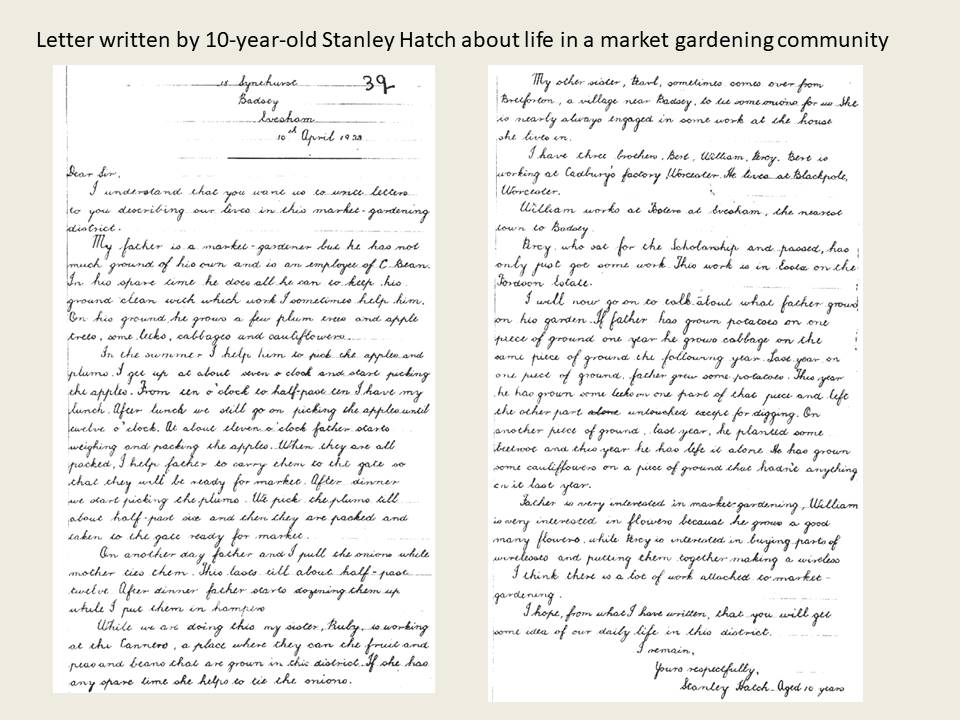 Letter written by 10-year-old Stanley Hatch about life in a market gardening community
18 Synehurst
39
Badsey
Evesham
10th April 1938
Dear Sir,
I understand that you want us to write letters
to you describing our lives in this market-gardening
district.
My father is a market-gardener but he has not
much ground of his own and is an employee of C. Bean.
In his spare time he does all he can to keep his
ground clean with which work I sometimes help him.
On his ground he grows a few plum trees and apple
trees, some leeks, cabbages and cauliflowers.
In the summer I help him to pick the apples and
plums. I get up at about seven o'clock and start picking
the apples. From ten o'clock to half-past ten I have my
lunch. After lunch we still go on picking the apples until
twelve o'clock. At about eleven o'clock father starts
weighing and packing the apples. When they are all
packed, I help father to carry them to the gate so
that they will be ready for market. After dinner
we start picking the plums. We pick the plums till
about half-past six and then they are packed and
taken to the gate ready for market.
On another day father and I pull the onions while
mother ties them. This lasts till about half-past
twelve. After dinner father starts dozening them up
while I put them in hampers
While we are doing this my sister, Ruby, is working
at the Canners, a place where they can the fruit and
peas and beans that are grown in this district. If she has
any spare time she helps to tie the onions.
My other sister, Pearl, sometimes comes over from
Bretforton, a village near Badsey, to tie some onions for us. She
is nearly always engaged in some work at the house
she lives in.
I have three brothers, Bert, William, Percy. Bert is
working at Cadbury's factory Worcester. He lives at Blackpole,
Worcester.
William works at at Evesham, the nearest
town to Badsey.
Percy, who sat for the Scholarship and passed, has
only just got some work. This work is in on the
Estate.
I will now go on to talk about what father grows
on his garden. If father has grown potatoes on one
piece of ground one year he grows cabbage on the
same piece of ground the following year. Last year on
one piece of ground, father grew some potatoes. This year
he has grown some leeks on one part of that piece and left
the other part alone untouched except for digging. On
another piece of ground, last year, he planted some
beetroot and this year he has left it alone. He has grown
some cauliflowers on a piece of ground that hadn't anything
on it last year.
Father is very interested in market-gardening, William
is very interested in flowers because he grows a good
many flowers, while Percy is interested in buying parts of
wirelesses and putting them together making a wireless
I think there is a lot of work attached to market-
gardening.
I hope, from what I have written, that you will get
some idea of our daily life in this district.
I remain,
Yours respectfully,
Stanley Hatch - Aged 10 years